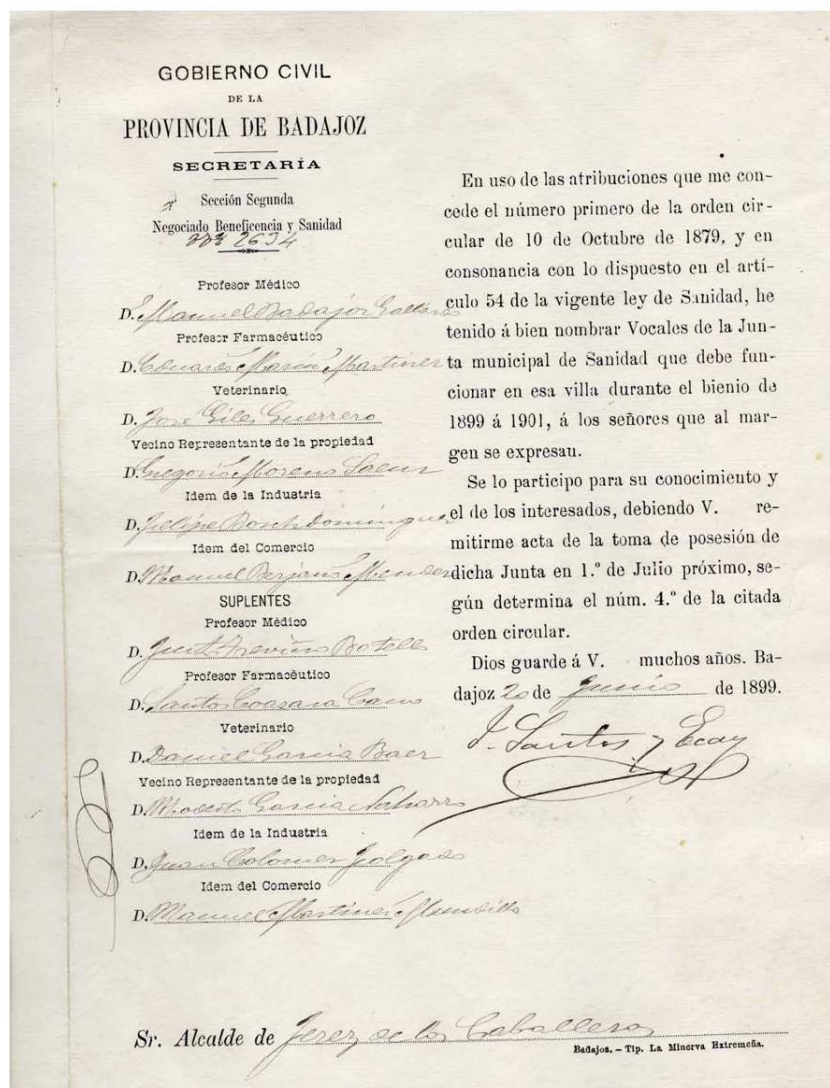 GOBIERNO CIVIL
DE LA
PROVINCIA DE BADAJOZ
SECRETARÍA
Sección Segunda
Negociado Beneficencia y Sanidad
2634
Profesor Médico
D. Manuel Badajoz
Profesor Farmacéutico
D. Eduardo Marín Martínez
Veterinario
D. José Giles Guerrero
Vecino Representante de la propiedad
D. Gregorio Moreno Saenz
Idem de la Industria
D. Felipe Bosch Domínguez
Idem del Comercio
D. Manuel Berjano Mendez
SUPLENTES
Profesor Médico
D. Treviño Botello
Profesor Farmacéutico
D. Santos Cano
Veterinario
D. Daniel Garcia Baer
Vecino Representante de la propiedad
D. Modesto Garcia
Idem de la Industria
D. Juan Colomer
Idem del Comercio
D. Manuel Martinez
En uso de las atribuciones que me con-
cede el número primero de la orden cir-
cular de 10 de Octubre de 1879, y en
consonancia con lo dispuesto en el artí-
culo 54 de la vigente ley de Sanidad, he
tenido á bien nombrar Vocales de la Jun-
ta municipal de Sanidad que debe fun-
cionar en esa villa durante el bienio de
1899 á 1901, á los señores que al mar-
gen se expresau.
Se lo participo para su conocimiento y
el de los interesados, debiendo V. re-
mitirme acta de la toma de posesión de
dicha Junta en 1.º de Julio próximo, se-
gún determina el núm. 4.º de la citada
orden circular.
Dios guarde á V. muchos años. Ba-
dajoz 20 de Junio de 1899.
Santos y Ecay
Sr. Alcalde de Jerez de los Caballeros
Badajoz. – Tip. La Minerva Extremeña.